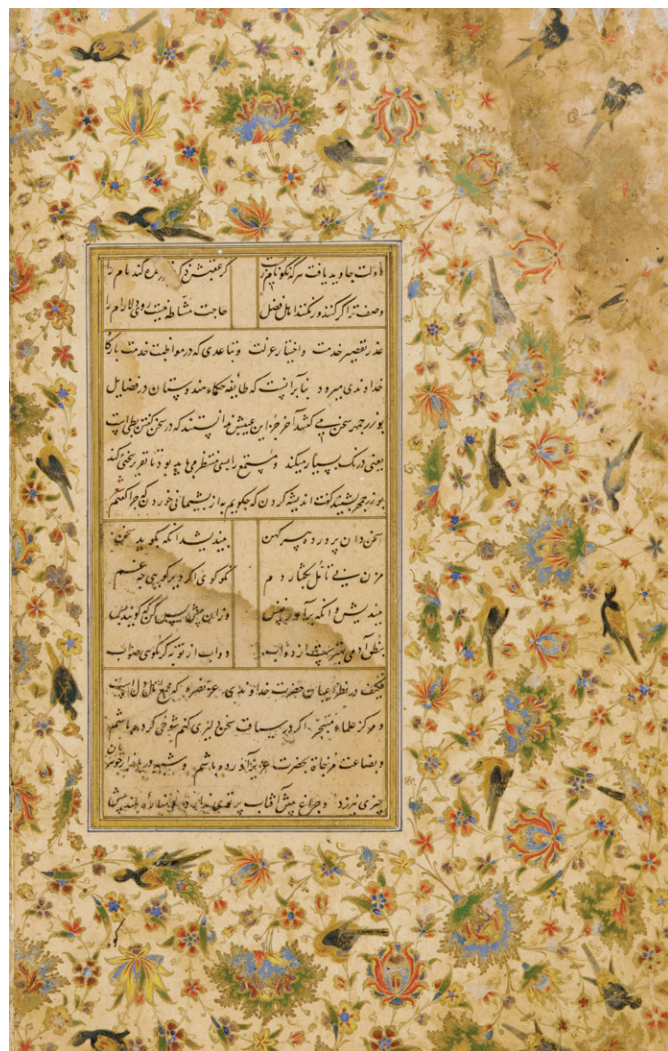 دولت جاوید یافت هرکه نکونام زیست کز عقبش ذکر خیر زنده کند نام را
وصف ترا گر کنند ور نکنند اهل فضل حاجت مشاطه نیست روی دلارام را
عذر تقصیر خدمت و اختیار عزلت و تباعدی که در مواظبت خدمت بارگاه
خداوندی میرود بنا برانست که طایفه حکماء هندوستان در فضایل
بوزرجمهر سخن می‌گفتند آخر جز این عیبش ندانستند که در سخن گفتن بطی است
یعنی درنگ بسیار میکند و مستمع را بسی منتظر می‌باید بود تا تقریر سخنی کند
بوزرجمهر بشنید گفت اندیشه کردن که چه گویم به از پشیمانی خوردن که چرا گفتم
سخن دان پرورده پیر کهن بیندیشد آنگه بگوید سخن
مزن بی تأمل بگفتار دم نکو گوی اگر دیر گویی چه غم
بیندیش و آنگه برآور نفس وزان پیش بس کن که گویند بس
بنطق آدمی بهترست از دواب دواب از تو به گر نگویی صواب
فکیف در نظر اعیان حضرت خداوندی عز نصره که مجمع اهل دل است
و مرکز علماء متبحر اگر در سیاقت سخن دلیری کنم شوخی کرده باشم
و بضاعت مزجاة بحضرت عزیز آورده باشم و شبه در بازار جوهریان
جوی نیرزد و چراغ پیش آفتاب پرتوی ندارد و مناره بلند پیش
که